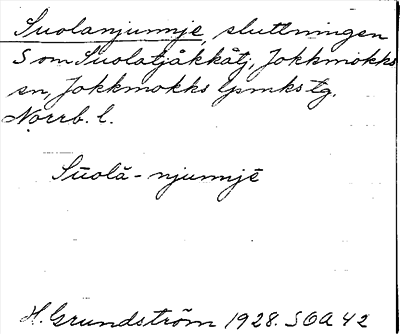 Suolanjunnje, sluttningen
S om Suolatjåkkåtj, Jokkmokks
sn, Jokkmokks lpmks tg.
Norrb. l.
Sūolă-njunnjē
H. Grundström 1928. SOA 42